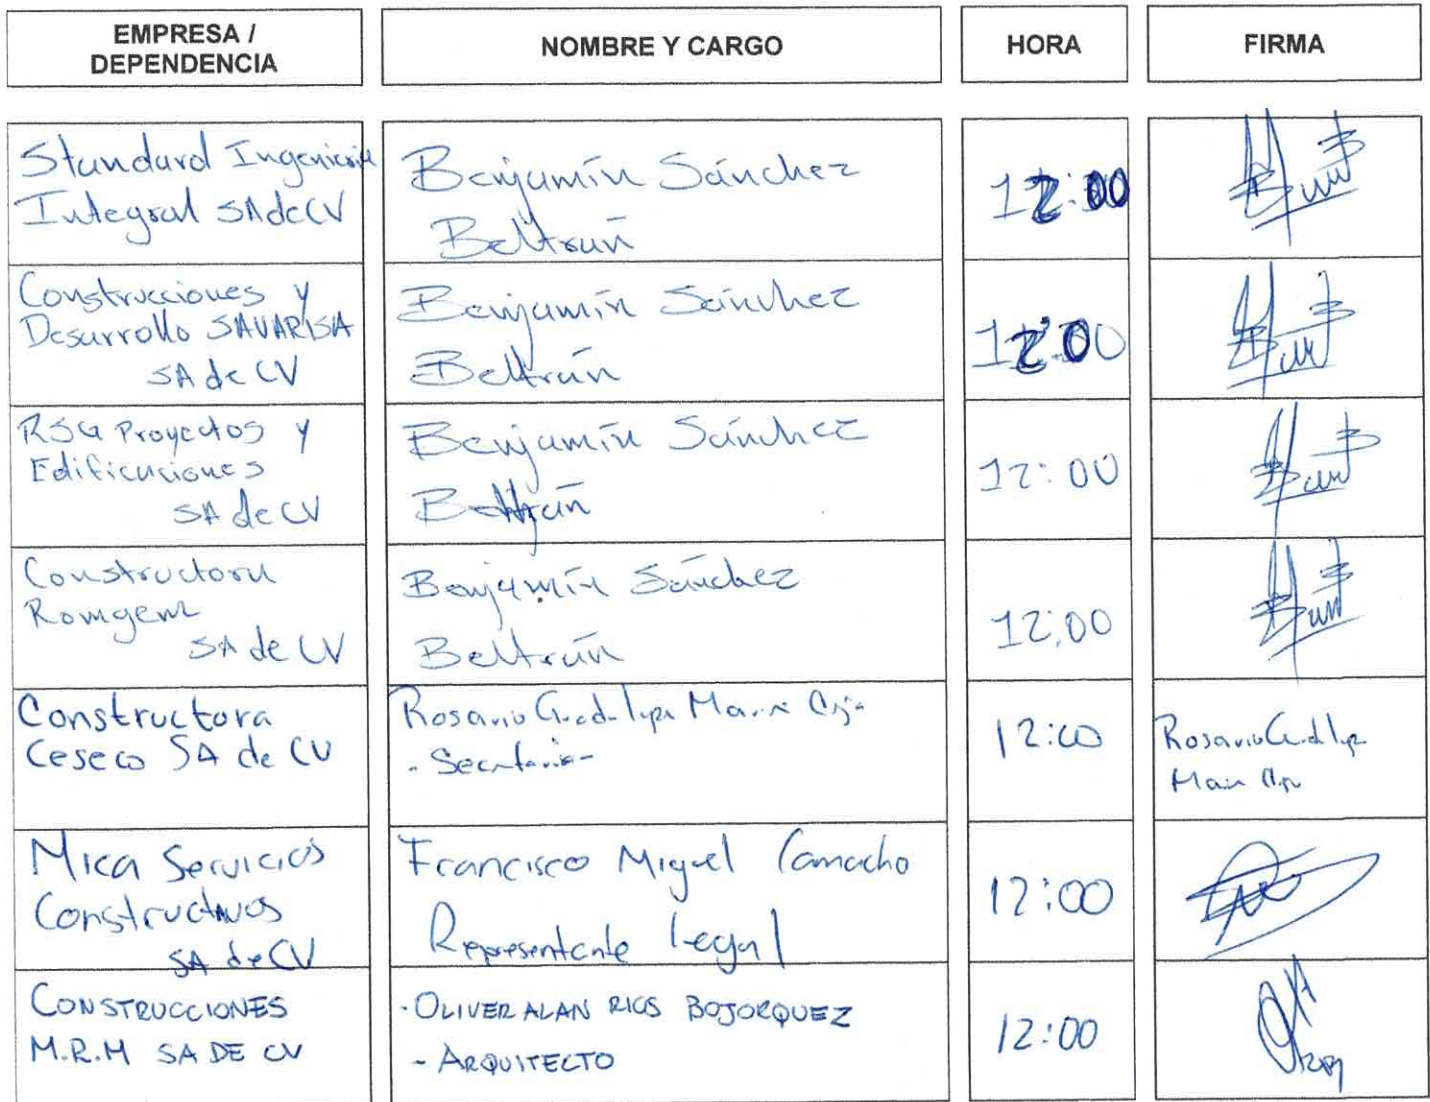 EMPRESA /
DEPENDENCIA
NOMBRE Y CARGO
HORA
FIRMA
Standard Ingenieria
Integral SA de CV
Benjamín Sánchez
Beltrán
12:00
Construcciones y
Desarrollo SAVARISA
SA de CV
Benjamín Sánchez
Beltrán
12:00
RSG Proyectos y
Edificaciones
SA de CV
Benjamín Sánchez
Beltrán
12:00
Constructora
Romgem
SA de CV
Benjamín Sánchez
Beltrán
12:00
Constructora
Ceseco SA de CV
Rosario Guadalupe
- Secretaria -
12:00
Rosario Guadalupe
Mica Servicios
Constructivos
SA de CV
Francisco Miguel Camacho
Representante legal
12:00
CONSTRUCCIONES
M.R.M SA DE CV
- OLIVER ALAN RIOS BOJORQUEZ
- ARQUITECTO
12:00